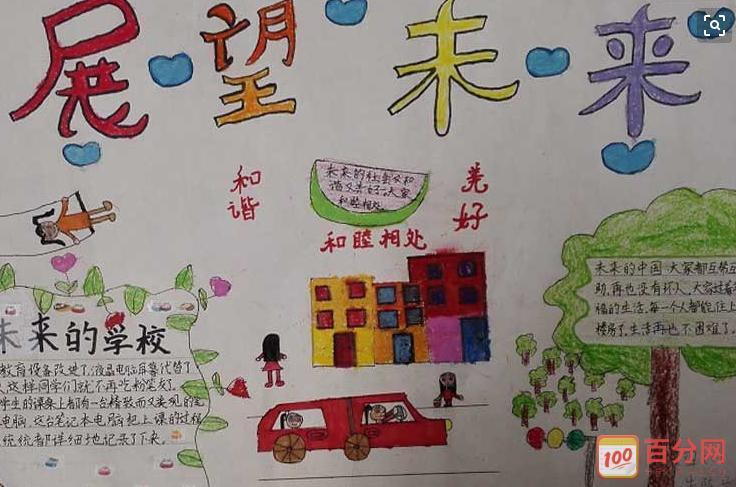 展望未来
和谐
未来的社会又和
谐又美好,大家
和睦相处。
美好
和睦相处
未来的中国,大家都互帮互
助,再也没有坏人,大家过着
福的生活,每一个人都能住上
楼房了,生活再也不困难了。
未来的学校
教育设备改进了,液晶电脑屏幕代替了
这样同学们就不再吃粉笔灰了
学生的课桌上都有一台精致而又美观的
电脑,这台笔记本电脑把上课的过程
统统都详细地记录了下来。
100
百分网